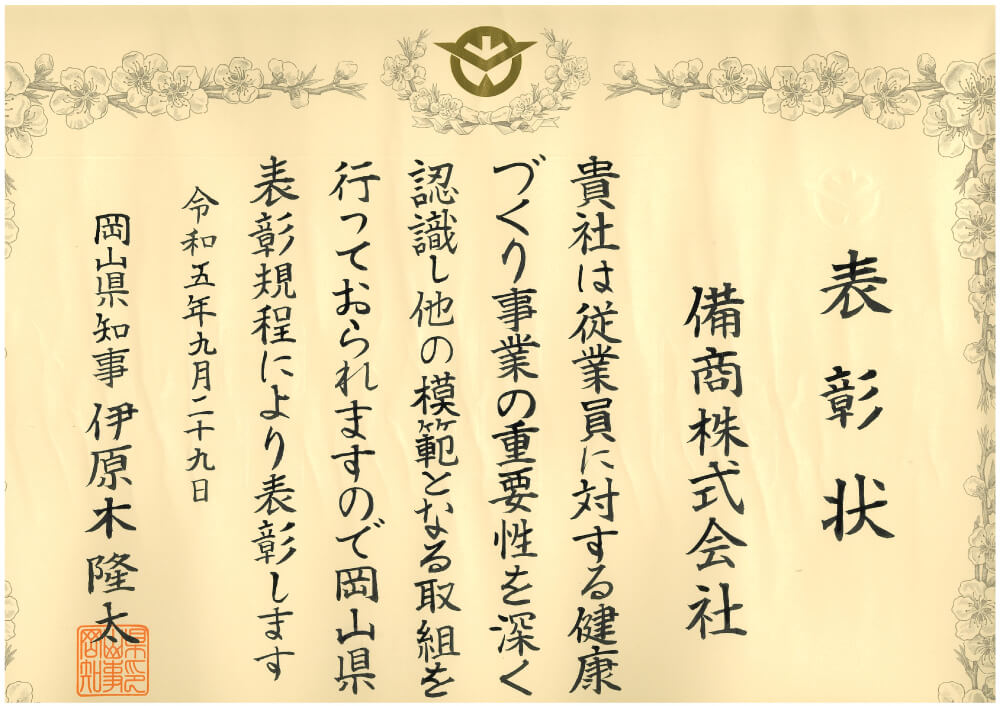 表彰状
備商株式会社
貴社は従業員に対する健康
づくり事業の重要性を深く
認識し他の模範となる取組を
行っておられますので岡山県
表彰規程により表彰します
令和五年九月二十九日
岡山県知事 伊原木隆太
岡山県知事之印